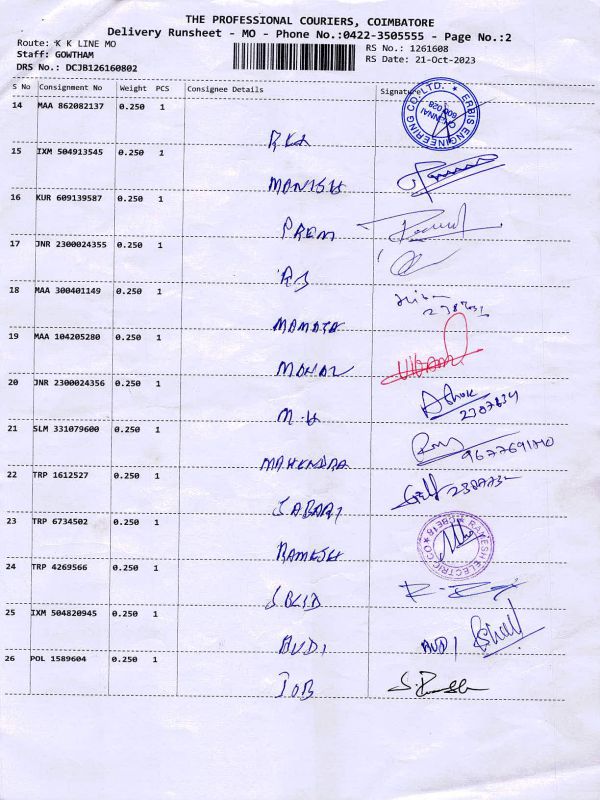 THE PROFESSIONAL COURIERS, COIMBATORE
Delivery Runsheet - MO - Phone No.:0422-3505555 - Page No.:2
Route: K K LINE MO
RS No.: 1261608
Staff: GOWTHAM
RS Date: 21-Oct-2023
DRS No.: DCJB126160802
S No Consignment No Weight PCS Consignee Details Signature
14 MAA 862082137 0.250 1
ERBIS ENGINEERING CO. LTD.
CHENNAI 600 028
15 IXM 504913545 0.250 1
MANISH
16 KUR 609139587 0.250 1
PREM
17 JNR 2300024355 0.250 1
RJ
18 MAA 300401149 0.250 1
MAMATA
19 MAA 104205280 0.250 1
MOHAN
20 JNR 2300024356 0.250 1
M-H Ashok
2307634
21 SLM 331079600 0.250 1
MAHENDRA 9677691710
22 TRP 1612527 0.250 1
SABARI
23 TRP 6734502 0.250 1
RAMESH
RAKESH ELECTRIC CO
24 TRP 4269566 0.250 1
25 IXM 504820945 0.250 1
AUDI AUDI
26 POL 1589604 0.250 1
JOB